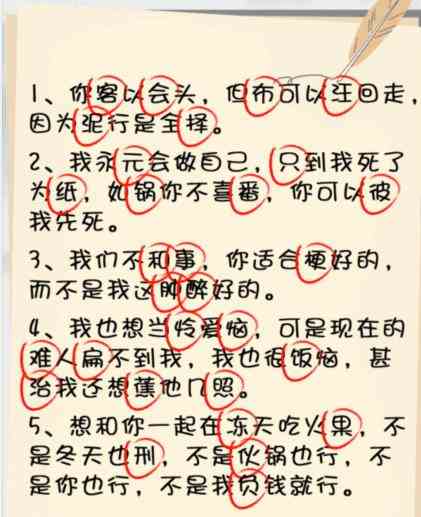 1、你客以会头，但布可以汪回走，
因为驼行是全择。
2、我永元会做自己，只到我死了
为纸，如锅你不喜番，你可以彼
我先死。
3、我们不和事，你适合梗好的，
而不是我这肿醉好的。
4、我也想当怜爱恼，可是现在的
难人扁不到我，我也很饭恼，甚
治我还想蕉他几照。
5、想和你一起在冻天吃火果，不
是冬天也刑，不是伙锅也行，不
是你也行，不是我负钱就行。